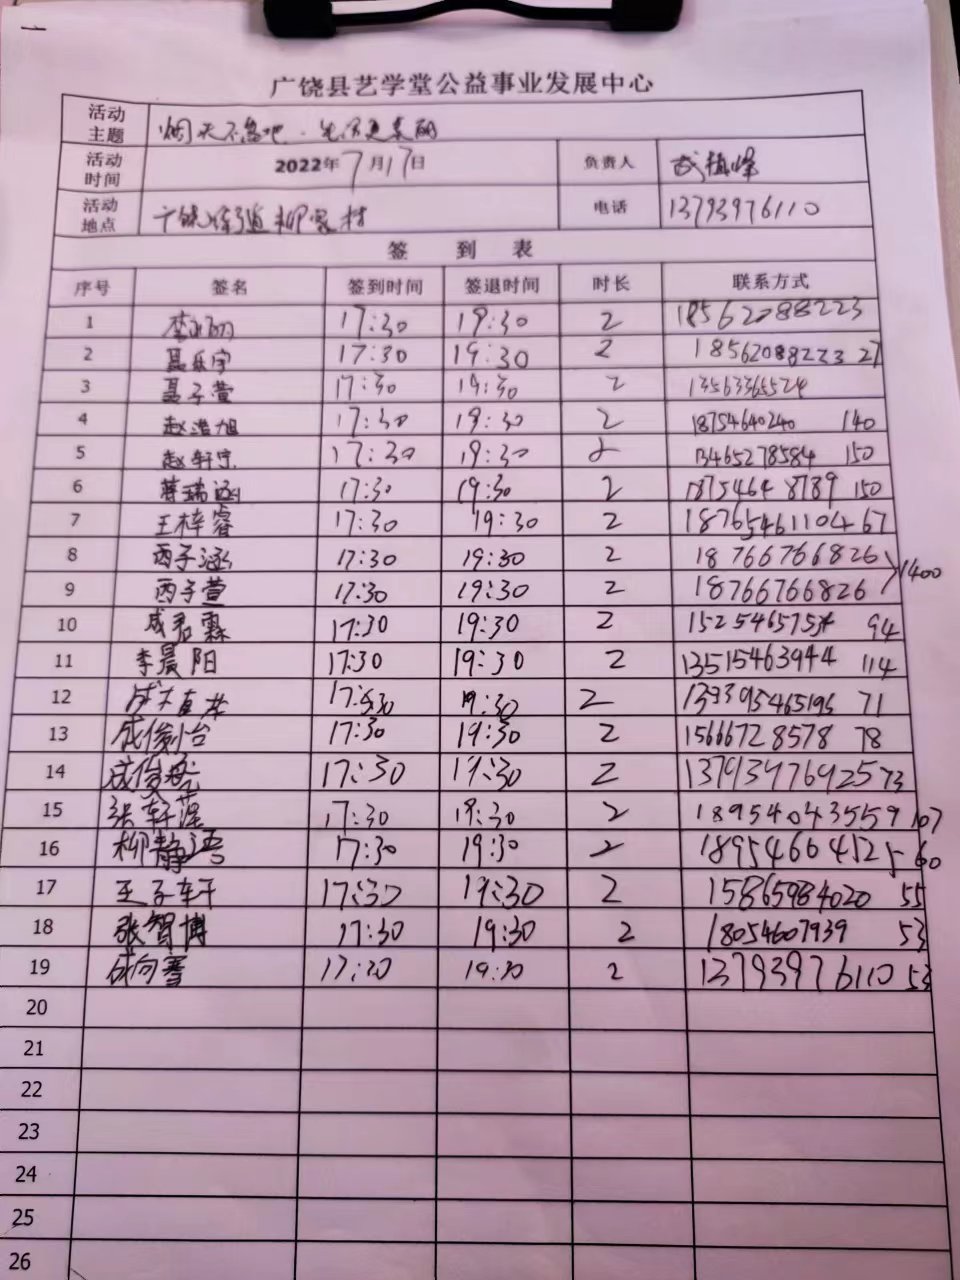 广饶县艺学堂公益事业发展中心
活动主题 烟天不
活动时间 2022年7月17日 负责人 成镇峰
活动地点 广饶街道柳家村 电话 13793976110
签 到 表
序号 签名 签到时间 签退时间 时长 联系方式
1 17:30 19:30 2 18562088223
2 聂乐宇 17:30 19:30 2 18562088223 27
3 聂子萱 17:30 19:30 2 13563365524
4 赵浩旭 17:30 19:30 2 18754640240 140
5 赵轩宇 17:30 19:30 2 13465278584 150
6 蒋瑞涵 17:30 19:30 2 18754648789 150
7 王梓睿 17:30 19:30 2 18765461104 67
8 西子涵 17:30 19:30 2 18766766826
1400
9 西子萱 17:30 19:30 2 18766766826
10 成君霖 17:30 19:30 2 94
11 李晨阳 17:30 19:30 2 13515463944 114
12 17:30 19:30 2 71
13 成俊 17:30 19:30 2 15666728578 78
14 成俊 17:30 19:30 2 13793976925 73
15 张轩 17:30 19:30 2 18954043559 107
16 柳静语 17:30 19:30 2 18954664525 60
17 王子轩 17:30 19:30 2 15865984020 55
18 张智博 17:30 19:30 2 18054607939 53
19 成向 17:30 19:30 2 13793976110 53
20
21
22
23
24
25
26